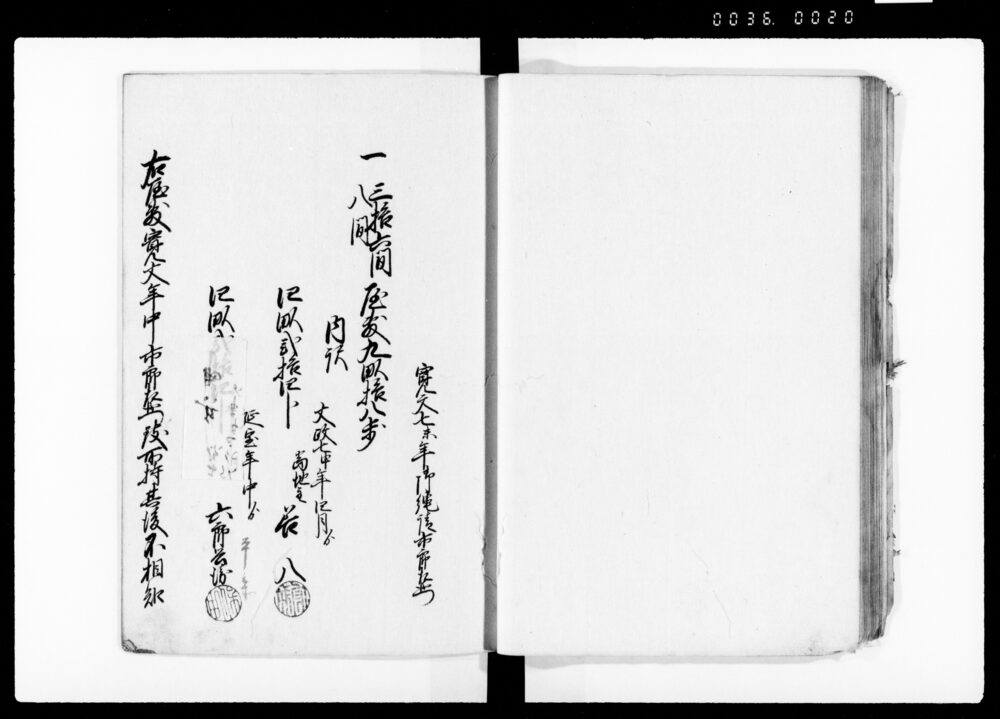 0036. 0020
寛文七未年御縄請市郎兵衛
一 三拾六間
八間
屋敷九畝拾八歩
内訳
文政七申年四月ゟ
当地主
四畝弐拾四卜 谷八
延宝年中ゟ
四畝 六郎兵衛
右屋敷寛文年中市郎兵衛致所持其後不相知